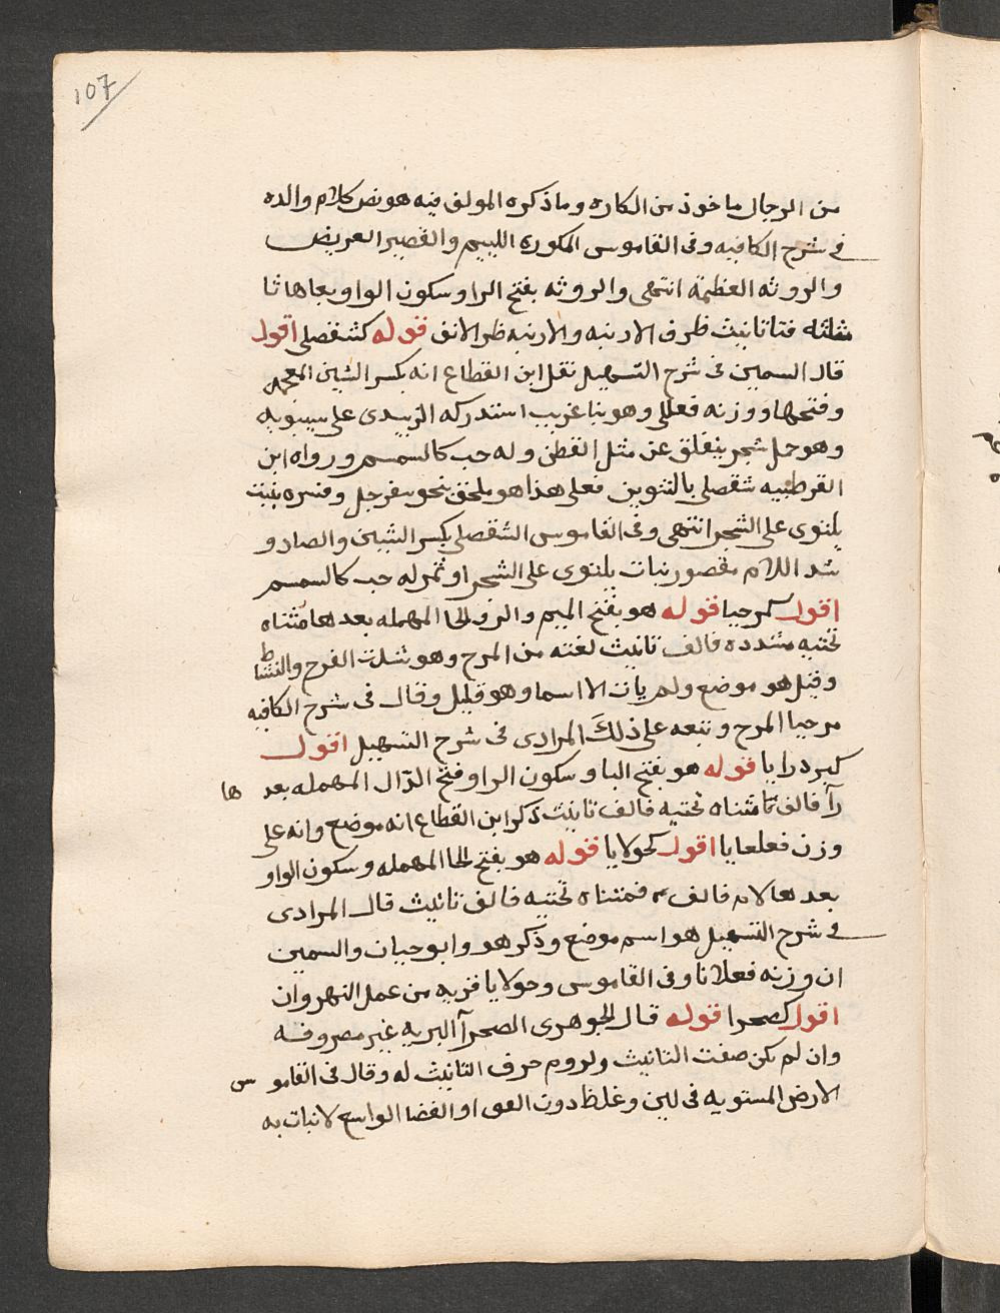 107
من الرجال ماخوذ من الكاره وما ذكره المولف فيه هو نص كلام والده
في شرح الكافيه وفى القاموس المكورى اللييم والقصير العريض
والروثه العظيمة انتهى والروثه بفتح الرا وسكون الواو بعاها ثا
مثلثه فتا تانيث طرف الارنبه والارنبه طرالانف قوله كشفصلي اقول
قال السمين فى شرح التسهيل نقل ابن القطاع انه بكسر الشين المعجمه
وفتحها ووزنه فعللي وهو بنا غريب استدركه الزبيدى على سيبويه
وهو حمل شجر ينفلق عن مثل القطن وله حب كالسمسم ورواه ابن
القرطبيه شقصلي بالتنوين فعلى هذا هو ملحق بنحو سفرجل وفسره بنبت
يلتوى على الشجر انتهى وفى القاموس الشقصلي بكسر الشين والصاد و
شد اللام مقصور نبات يلتوى على الشجر او ثمر له حب كالسمسم
اقول كمرحيا قوله هو بفتح الميم والرو لحا المهمله بعدها مثناه
تحتيه مشدده فالف تانيث لغته من المرح وهو شدت الفرح والنشاط
وقيل هو موضع ولم يات الا اسما وهو قليل وقال فى شرح الكافيه
مرحيا المرح وتبعه على ذلك المرادى فى شرح التسهيل اقول
كبردرايا قوله هو بفتح البا وسكون الرا وفتح الدال المهمله بعد ها
رآ فالف فمثناه تحتيه فالف تانيث ذكر ابن القطاع انه موضع وانه على
وزن فعلعايا اقول كحولايا قوله هو بفتح الحا المهمله وسكون الواو
بعدها لام فالف فمثناه تحتيه فالف تانيث قال المرادى
في شرح التسهيل هو اسم موضع وذكر هو وابو حيان والسمين
ان وزنه فعلانا وفى القاموس وحولايا قريه من عمل النهروان
اقول كصحرا قوله قال الجوهرى الصحرآ البريه غير مصروفه
وان لم يكن صفت التانيث ولزوم حرف التانيث له وقال فى القامو س
الارض المستويه فى لين وغلظ دون القف او الفضا الواسع لا نبات به